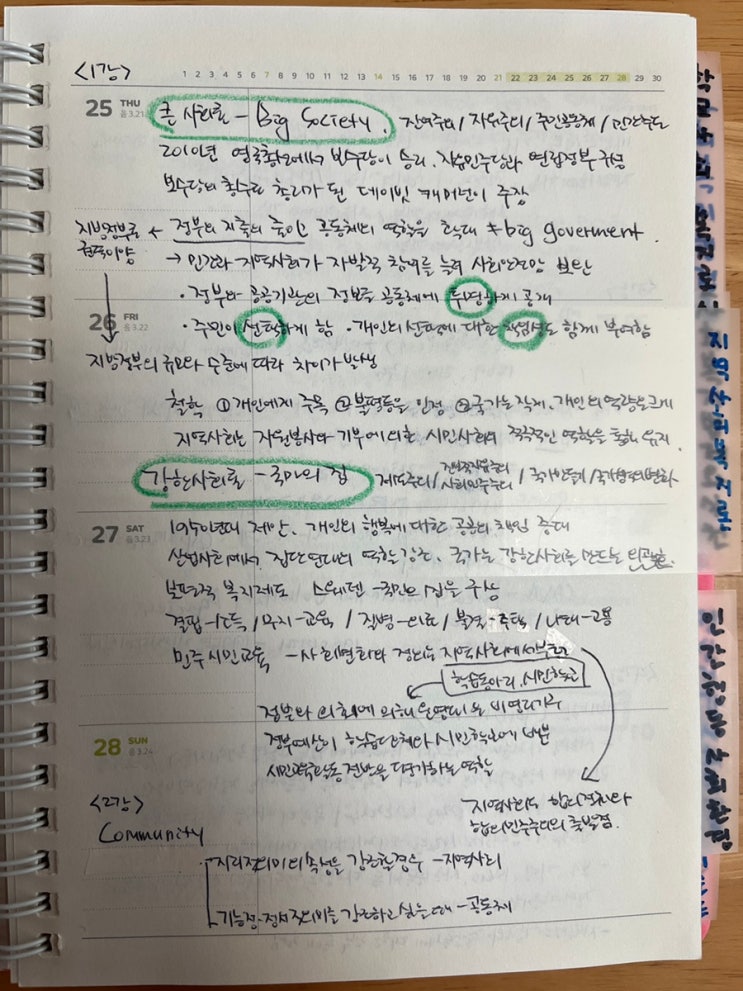 <1강>
1 2 3 4 5 6 7 8 9 10 11 12 13 14 15 16 17 18 19 20 21 22 23 24 25 26 27 28 29 30
25 THU
음3.21
큰 사회론 - Big Society. 잔여주의 / 자유주의 / 주민공동체 / 민간주도
2010년 영국총선에서 보수당이 승리. 자유민주당과 연립정부 구성
보수당의 당수로 총리가 된 데이빗 캐머런이 주장
지방정부로 권력이양
정부의 지출의 줄이고 공동체의 역할을 확대 ≠ big goverment.
→ 민간과 지역사회가 자발적 참여를 늘려 사회안전망 보완
· 정부와 공공기관의 정보를 공동체에 투명하게 공개
26 FRI
음3.22
· 주민이 선택하게 함 · 개인의 선택에 대한 책임성도 함께 부여함
지방정부의 규모와 수준에 따라 차이가 발생
철학 ① 개인에게 주목 ② 불평등을 인정 ③ 국가는 작게, 개인의 역량은 크게
지역사회는 자원봉사와 기부에 의한 시민사회의 적극적인 역할을 통해 유지.
강한사회론 - 국민의 집 제도주의 / 사회민주주의 / 국가만들기 /
27 SAT
음3.23
개인의 행복에 대한 공동의 책임 증대
산업사회에서 집단연대의 역할 강조. 국가는 강한사회를 만드는
보편적 복지제도 스웨덴 - 국민의 집을 구상
결핍-소득 / 무지-교육 / 질병-의료 / 불결-주택 / 나태-고용
민주시민교육 - 사회변화와 정의는 지역사회에서부터
학습동아리, 시민학교
정부와 의회에 의해 운영되는 비영리기구
28 SUN
음3.24
정부예산이 학습단체와 시민학교에 배분
시민교육활동 전반을 평가하는 역할
<2강>
지역사회는 합의정치와
합의민주주의의 출발점.
Community
· 지리적의미의 특성을 강조할경우 - 지역사회
기능적·정서적의미를 강조하고 싶을때 - 공동체
학교사회복지론
지역사회복지론
인간행동사회환경